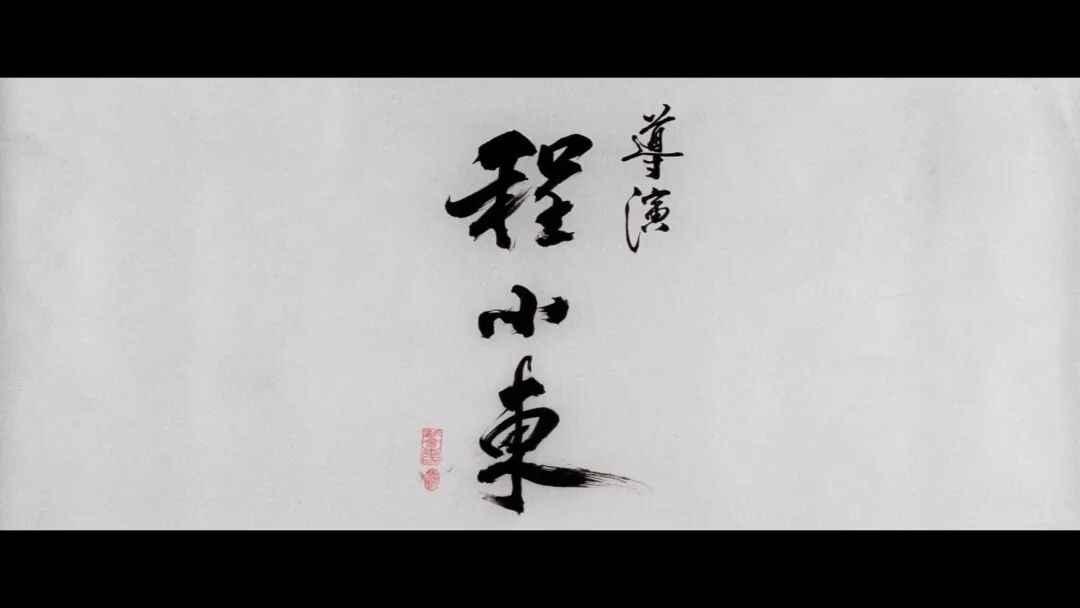 導演
程小東